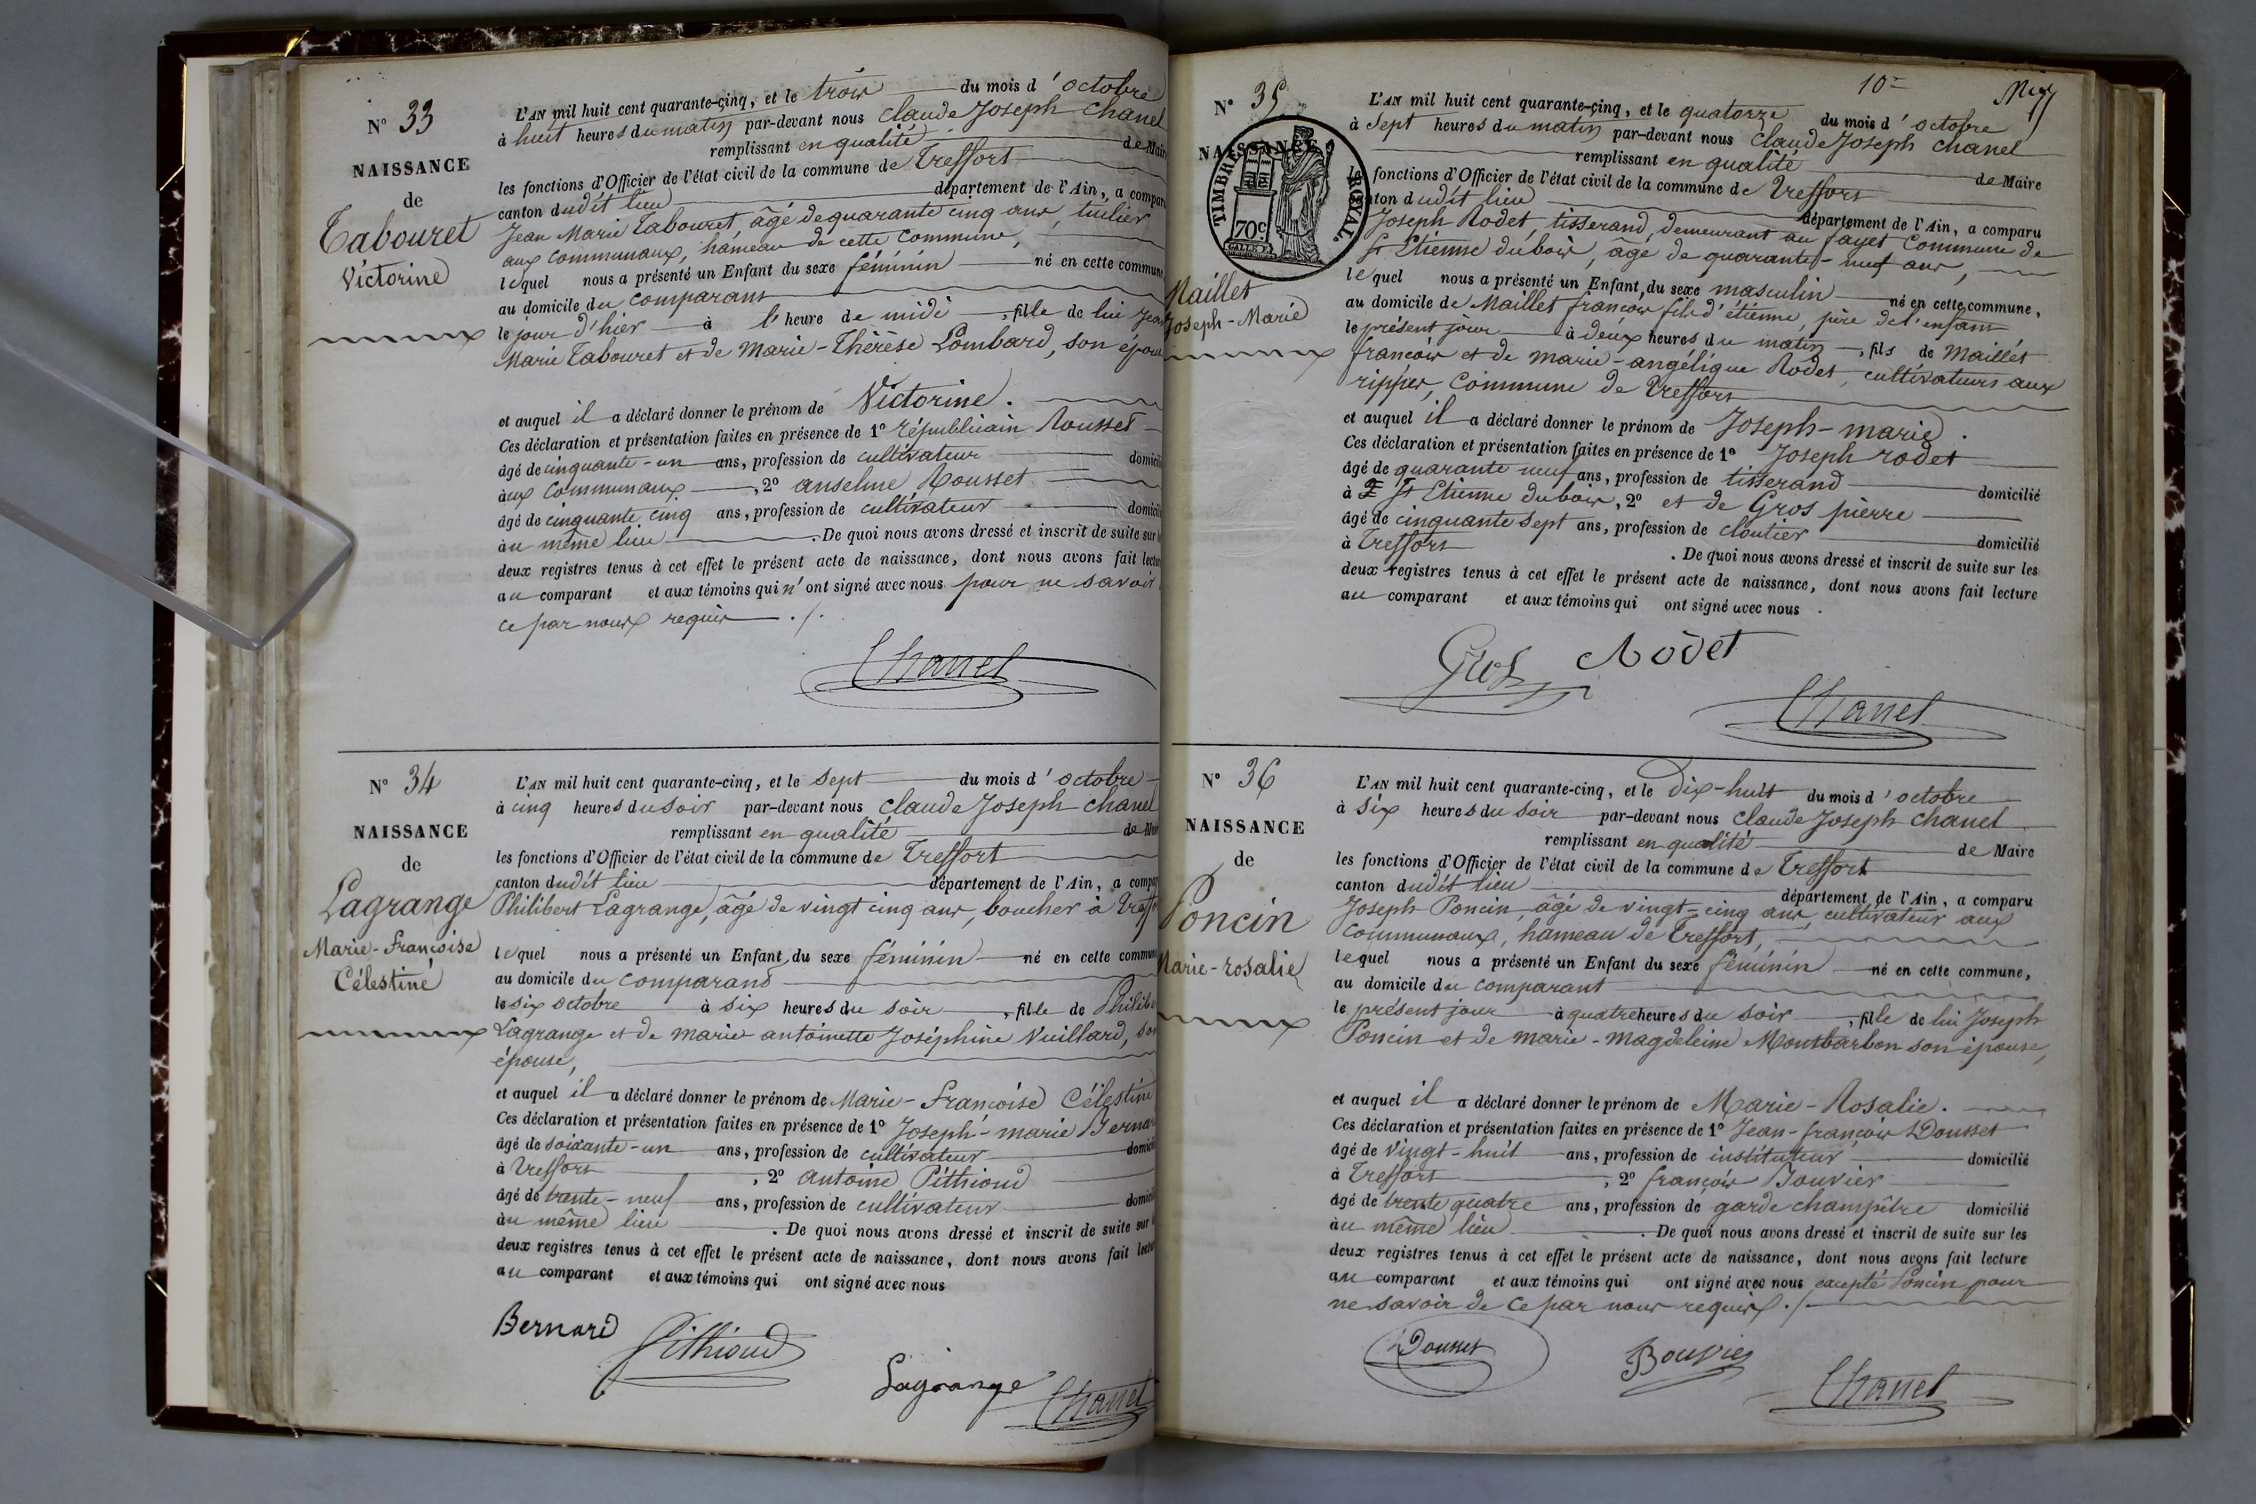 N° 33
NAISSANCE
de
Tabouret
Victorine
L'AN mil huit cent quarante-cinq, et le trois du mois d'octobre
à huit heures du matin par-devant nous Claude Joseph Chanel
remplissant en qualité de Maire
les fonctions d'Officier de l'état civil de la commune de Treffort
canton dudit lieu département de l'Ain, a compar
Jean Marie Tabouret, âgé de quarante cinq ans, tuilier
aux communaux, hameau de cette commune,
lequel nous a présenté un Enfant du sexe féminin né en cette commune
au domicile du comparant
le jour d'hier à l'heure de midi, fille de lui Jean
Marie Tabouret et de Marie-Thérèse Lombard, son épouse
et auquel il a déclaré donner le prénom de Victorine.
Ces déclaration et présentation faites en présence de 1° républicain Rousset
âgé de cinquante-un ans, profession de cultivateur domicilié
aux communaux, 2° anselme Rousset
âgé de cinquante cinq ans, profession de cultivateur domicilié
au même lieu. De quoi nous avons dressé et inscrit de suite sur
deux registres tenus à cet effet le présent acte de naissance, dont nous avons fait lecture
au comparant et aux témoins qui n'ont signé avec nous pour ne savoir
ce par nous requis ./.
Chanel
N° 34
NAISSANCE
de
Lagrange
Marie-Françoise
Célestine
L'AN mil huit cent quarante-cinq, et le sept du mois d'octobre
à cinq heures du soir par-devant nous Claude Joseph Chanel
remplissant en qualité de Maire
les fonctions d'Officier de l'état civil de la commune de Treffort
canton dudit lieu département de l'Ain, a compar
Philibert Lagrange, âgé de vingt cinq ans, boucher à Treffort
lequel nous a présenté un Enfant du sexe féminin né en cette commune
au domicile du comparant
le six octobre à six heures du soir, fille de Philibert
Lagrange et de marie antoinette Joséphine Vuillard, son
épouse,
et auquel il a déclaré donner le prénom de Marie-Françoise Célestine
Ces déclaration et présentation faites en présence de 1° Joseph-marie Bernard
âgé de soixante-un ans, profession de cultivateur domicilié
à Treffort, 2° antoine Pithioud
âgé de trente-neuf ans, profession de cultivateur domicilié
au même lieu. De quoi nous avons dressé et inscrit de suite sur
deux registres tenus à cet effet le présent acte de naissance, dont nous avons fait lecture
au comparant et aux témoins qui ont signé avec nous
Bernard Pithioud
Lagrange Chanel
10e
N° 35
NAISSANCE
TIMBRE ROYAL
70c
Maillet
Joseph-Marie
L'AN mil huit cent quarante-cinq, et le quatorze du mois d'octobre
à sept heures du matin par-devant nous Claude Joseph Chanel
remplissant en qualité de Maire
fonctions d'Officier de l'état civil de la commune de Treffort
ton dudit lieu département de l'Ain, a comparu
Joseph Rodet, tisserand, demeurant au fayet commune de
St Etienne dubois, âgé de quarante-neuf ans,
lequel nous a présenté un Enfant du sexe masculin né en cette commune,
au domicile de Maillet françois fils d'étienne, père de l'enfant
le présent jour à deux heures du matin, fils de Maillet
françois et de marie-angélique Rodet, cultivateurs aux
rippes, commune de Treffort
et auquel il a déclaré donner le prénom de Joseph-marie.
Ces déclaration et présentation faites en présence de 1° Joseph rodet
âgé de quarante neuf ans, profession de tisserand domicilié
à St Etienne dubois, 2° et de Gros pierre
âgé de cinquante sept ans, profession de cloutier domicilié
à Treffort. De quoi nous avons dressé et inscrit de suite sur les
deux registres tenus à cet effet le présent acte de naissance, dont nous avons fait lecture
au comparant et aux témoins qui ont signé avec nous.
Gros Rodet
Chanel
N° 36
NAISSANCE
de
Poncin
Marie-rosalie
L'AN mil huit cent quarante-cinq, et le Dix-huit du mois d'octobre
à six heures du soir par-devant nous Claude Joseph Chanel
remplissant en qualité de Maire
les fonctions d'Officier de l'état civil de la commune de Treffort
canton dudit lieu département de l'Ain, a comparu
Joseph Poncin, âgé de vingt-cinq ans, cultivateur aux
communaux, hameau de Treffort,
lequel nous a présenté un Enfant du sexe féminin né en cette commune,
au domicile du comparant
le présent jour à quatre heures du soir, fille de lui Joseph
Poncin et de marie-magdeleine Montbarbon son épouse,
et auquel il a déclaré donner le prénom de Marie-Rosalie.
Ces déclaration et présentation faites en présence de 1° Jean-françois Dousset
âgé de vingt-huit ans, profession de instituteur domicilié
à Treffort, 2° françois Bouvier
âgé de trente quatre ans, profession de garde champêtre domicilié
au même lieu. De quoi nous avons dressé et inscrit de suite sur les
deux registres tenus à cet effet le présent acte de naissance, dont nous avons fait lecture
au comparant et aux témoins qui ont signé avec nous excepté Poncin pour
ne savoir de ce par nous requis ./.
Dousset Bouvier
Chanel